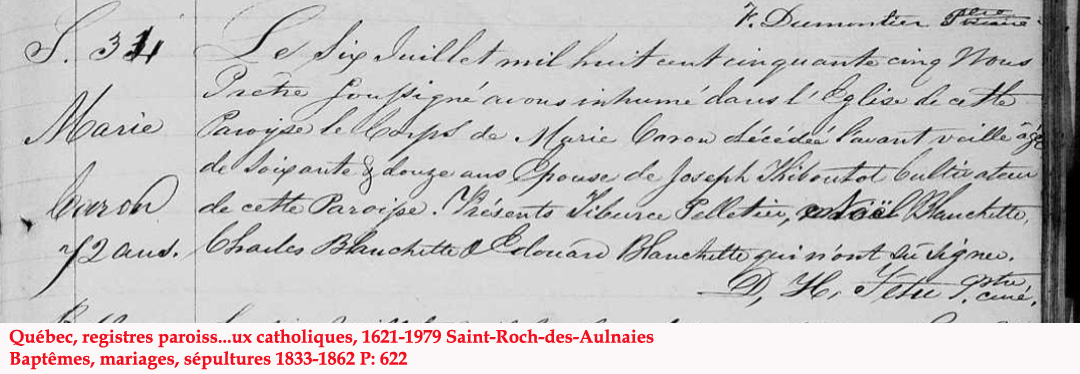 F. Dumontier Ptre vicaire
S. 34
Marie
Caron
72 ans.
Le Six Juillet mil huit cent cinquante cinq Nous
Prêtre Soussigné avons inhumé dans l'Eglise de cette
Paroisse le Corps de Marie Caron décédée l'avant veille âgée
de soixante & douze ans Epouse de Joseph Thiboutot Cultivateur
de cette Paroisse. Présents Tiburce Pelletier, Noël Blanchette,
Charles Blanchette & Edouard Blanchette qui n'ont sû signer.
D. H. Têtu Ptre curé.
Québec, registres paroiss...ux catholiques, 1621-1979 Saint-Roch-des-Aulnaies
Baptêmes, mariages, sépultures 1833-1862 P: 622